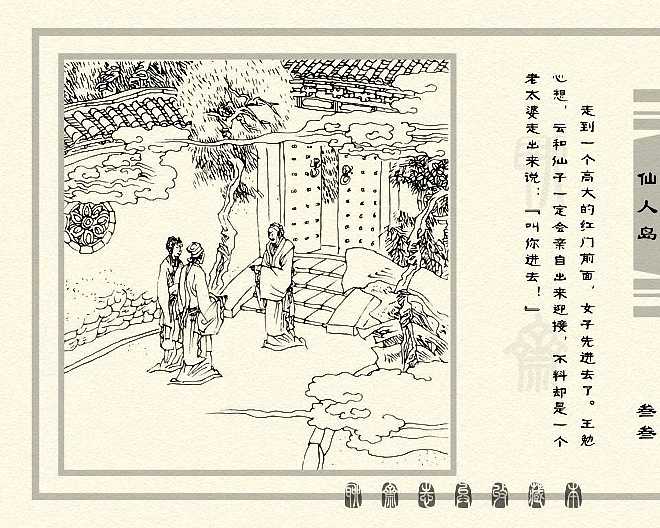 走到一个高大的红门前面，女子先进去了。王勉
心想，云和仙子一定会亲自出来迎接，不料却是一个
老太婆走出来说：『叫你进去！』
仙人岛
叁叁
聊斋志异收藏本